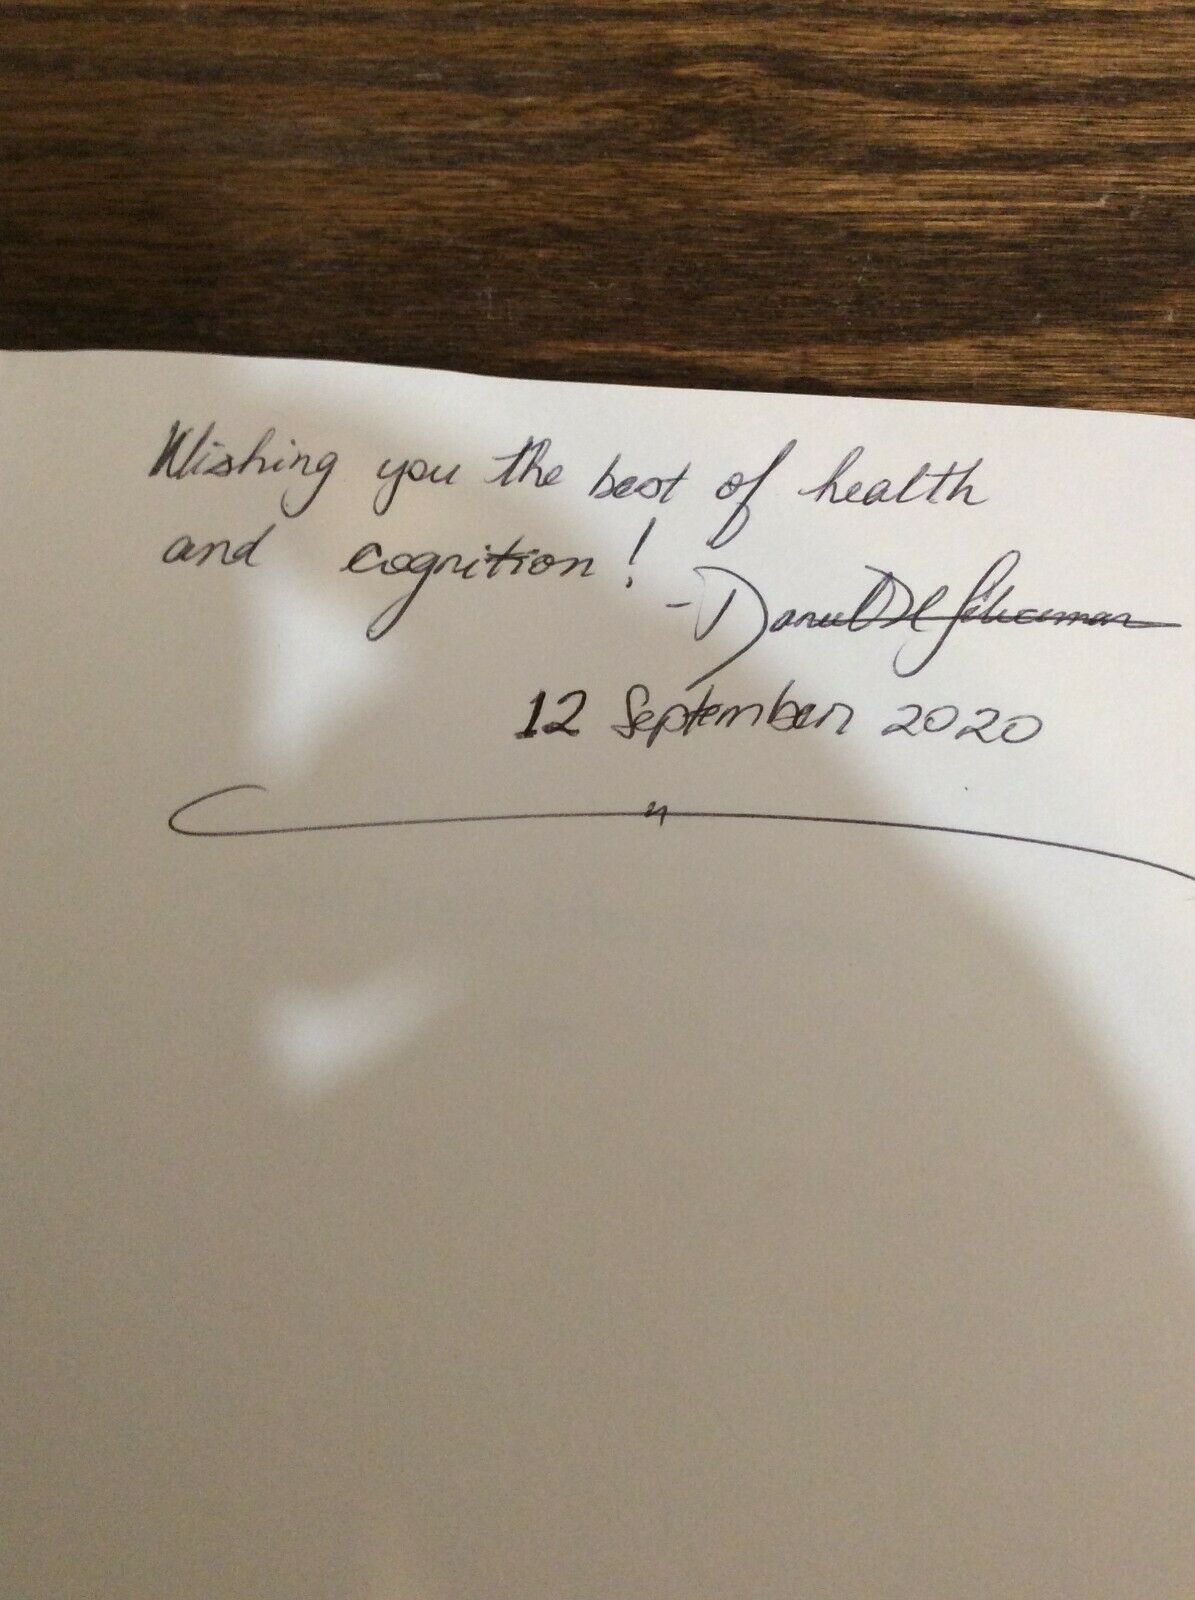 Wishing you the best of health
and cognition!
- Daniel
12 September 2020